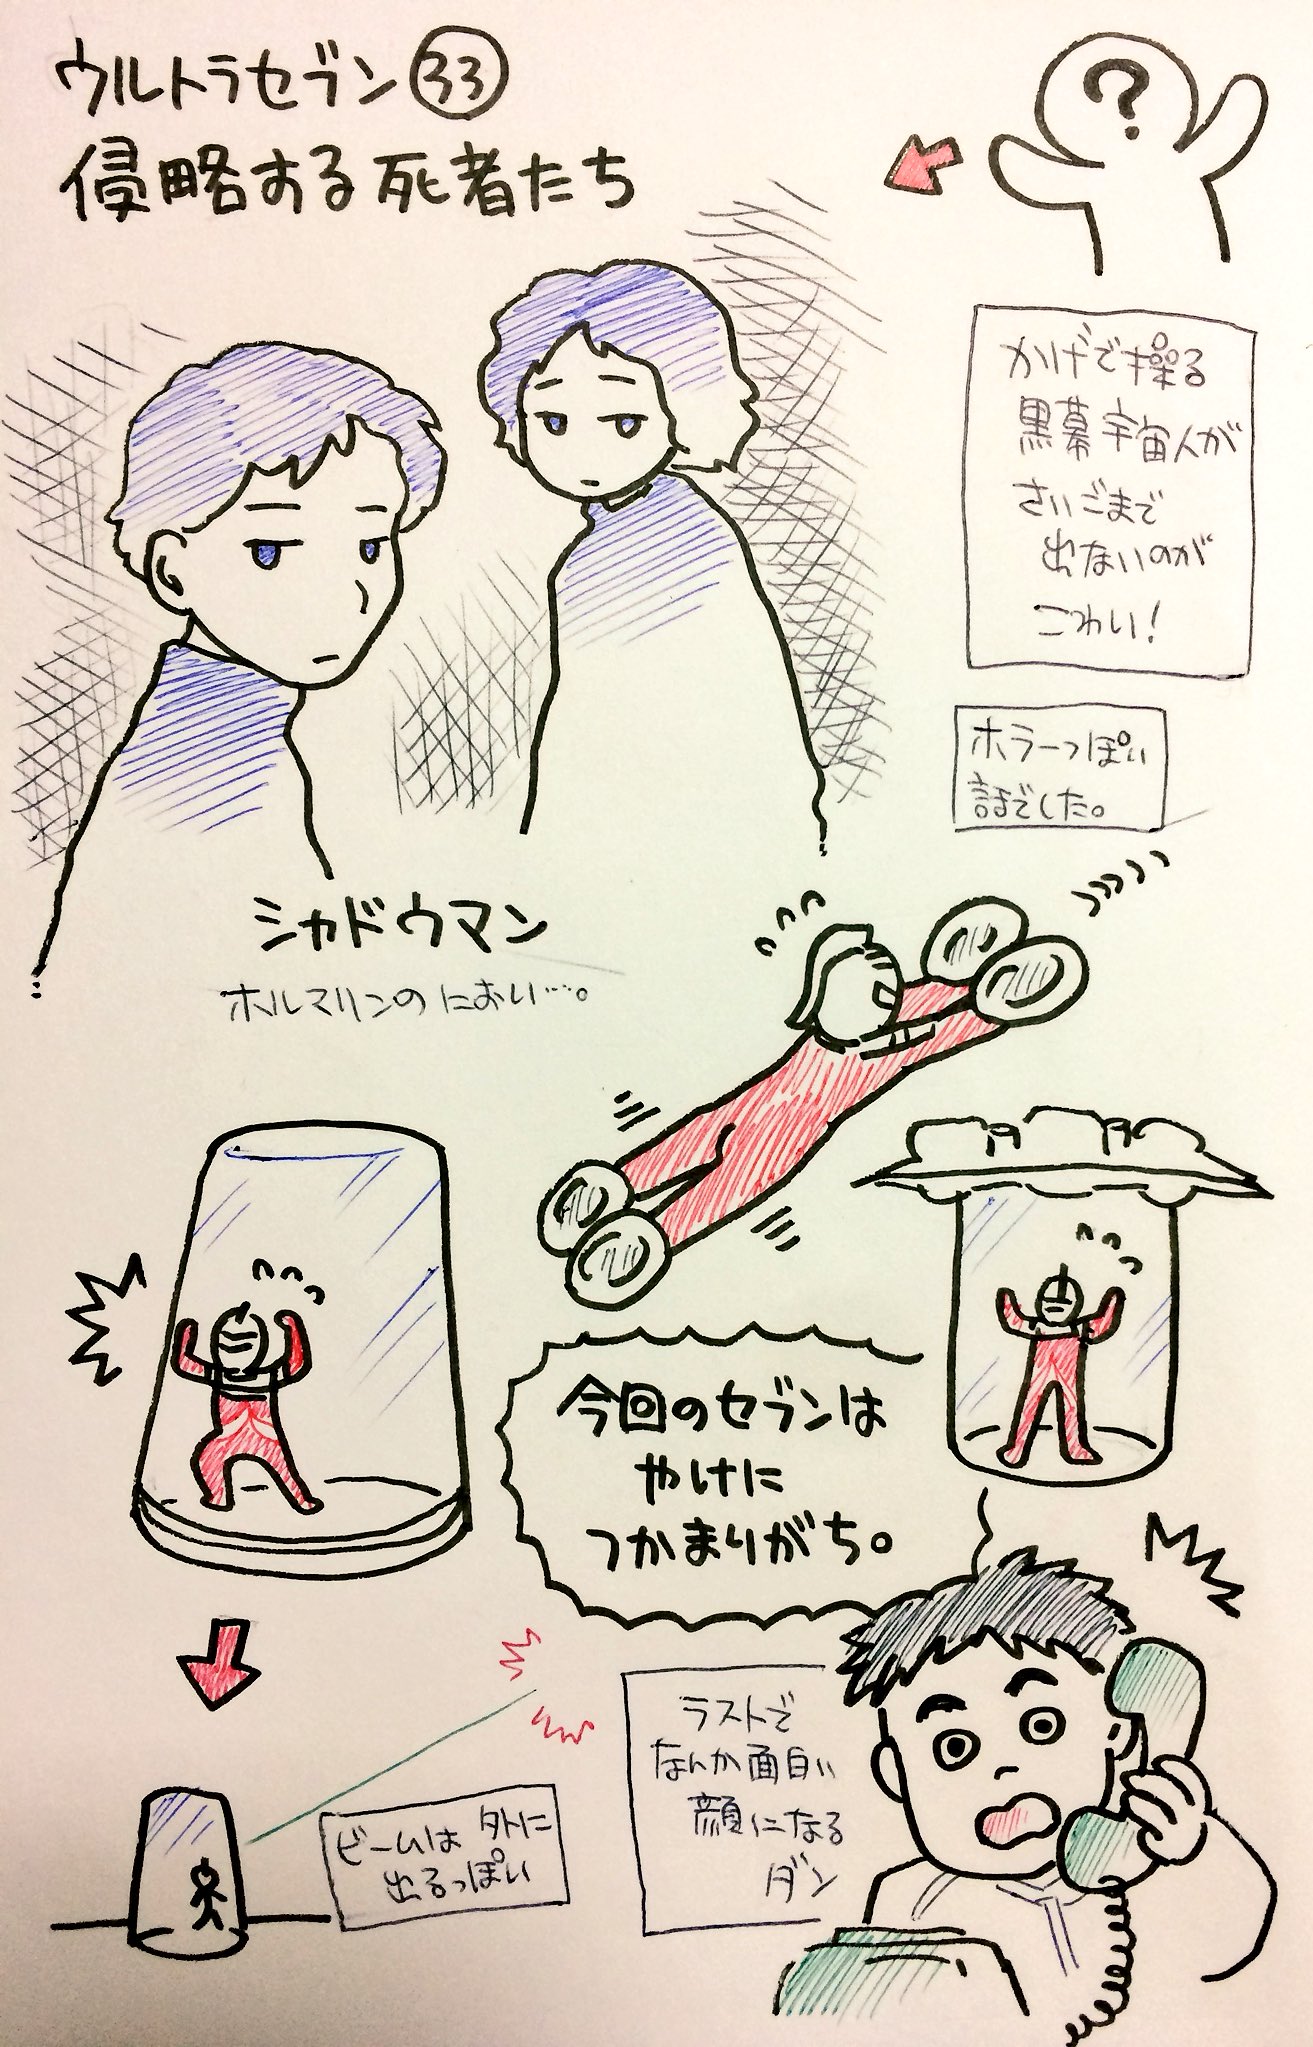 ウルトラセブン㉝
侵略する死者たち
?
かげで操る
黒幕宇宙人が
さいごまで
出ないのが
こわい!
ホラーっぽい
話でした。
シャドウマン
ホルマリンのにおい…。
今回のセブンは
やけに
つかまりがち。
ビームは外に
出るっぽい
ラストで
なんか面白い
顔になる
ダン